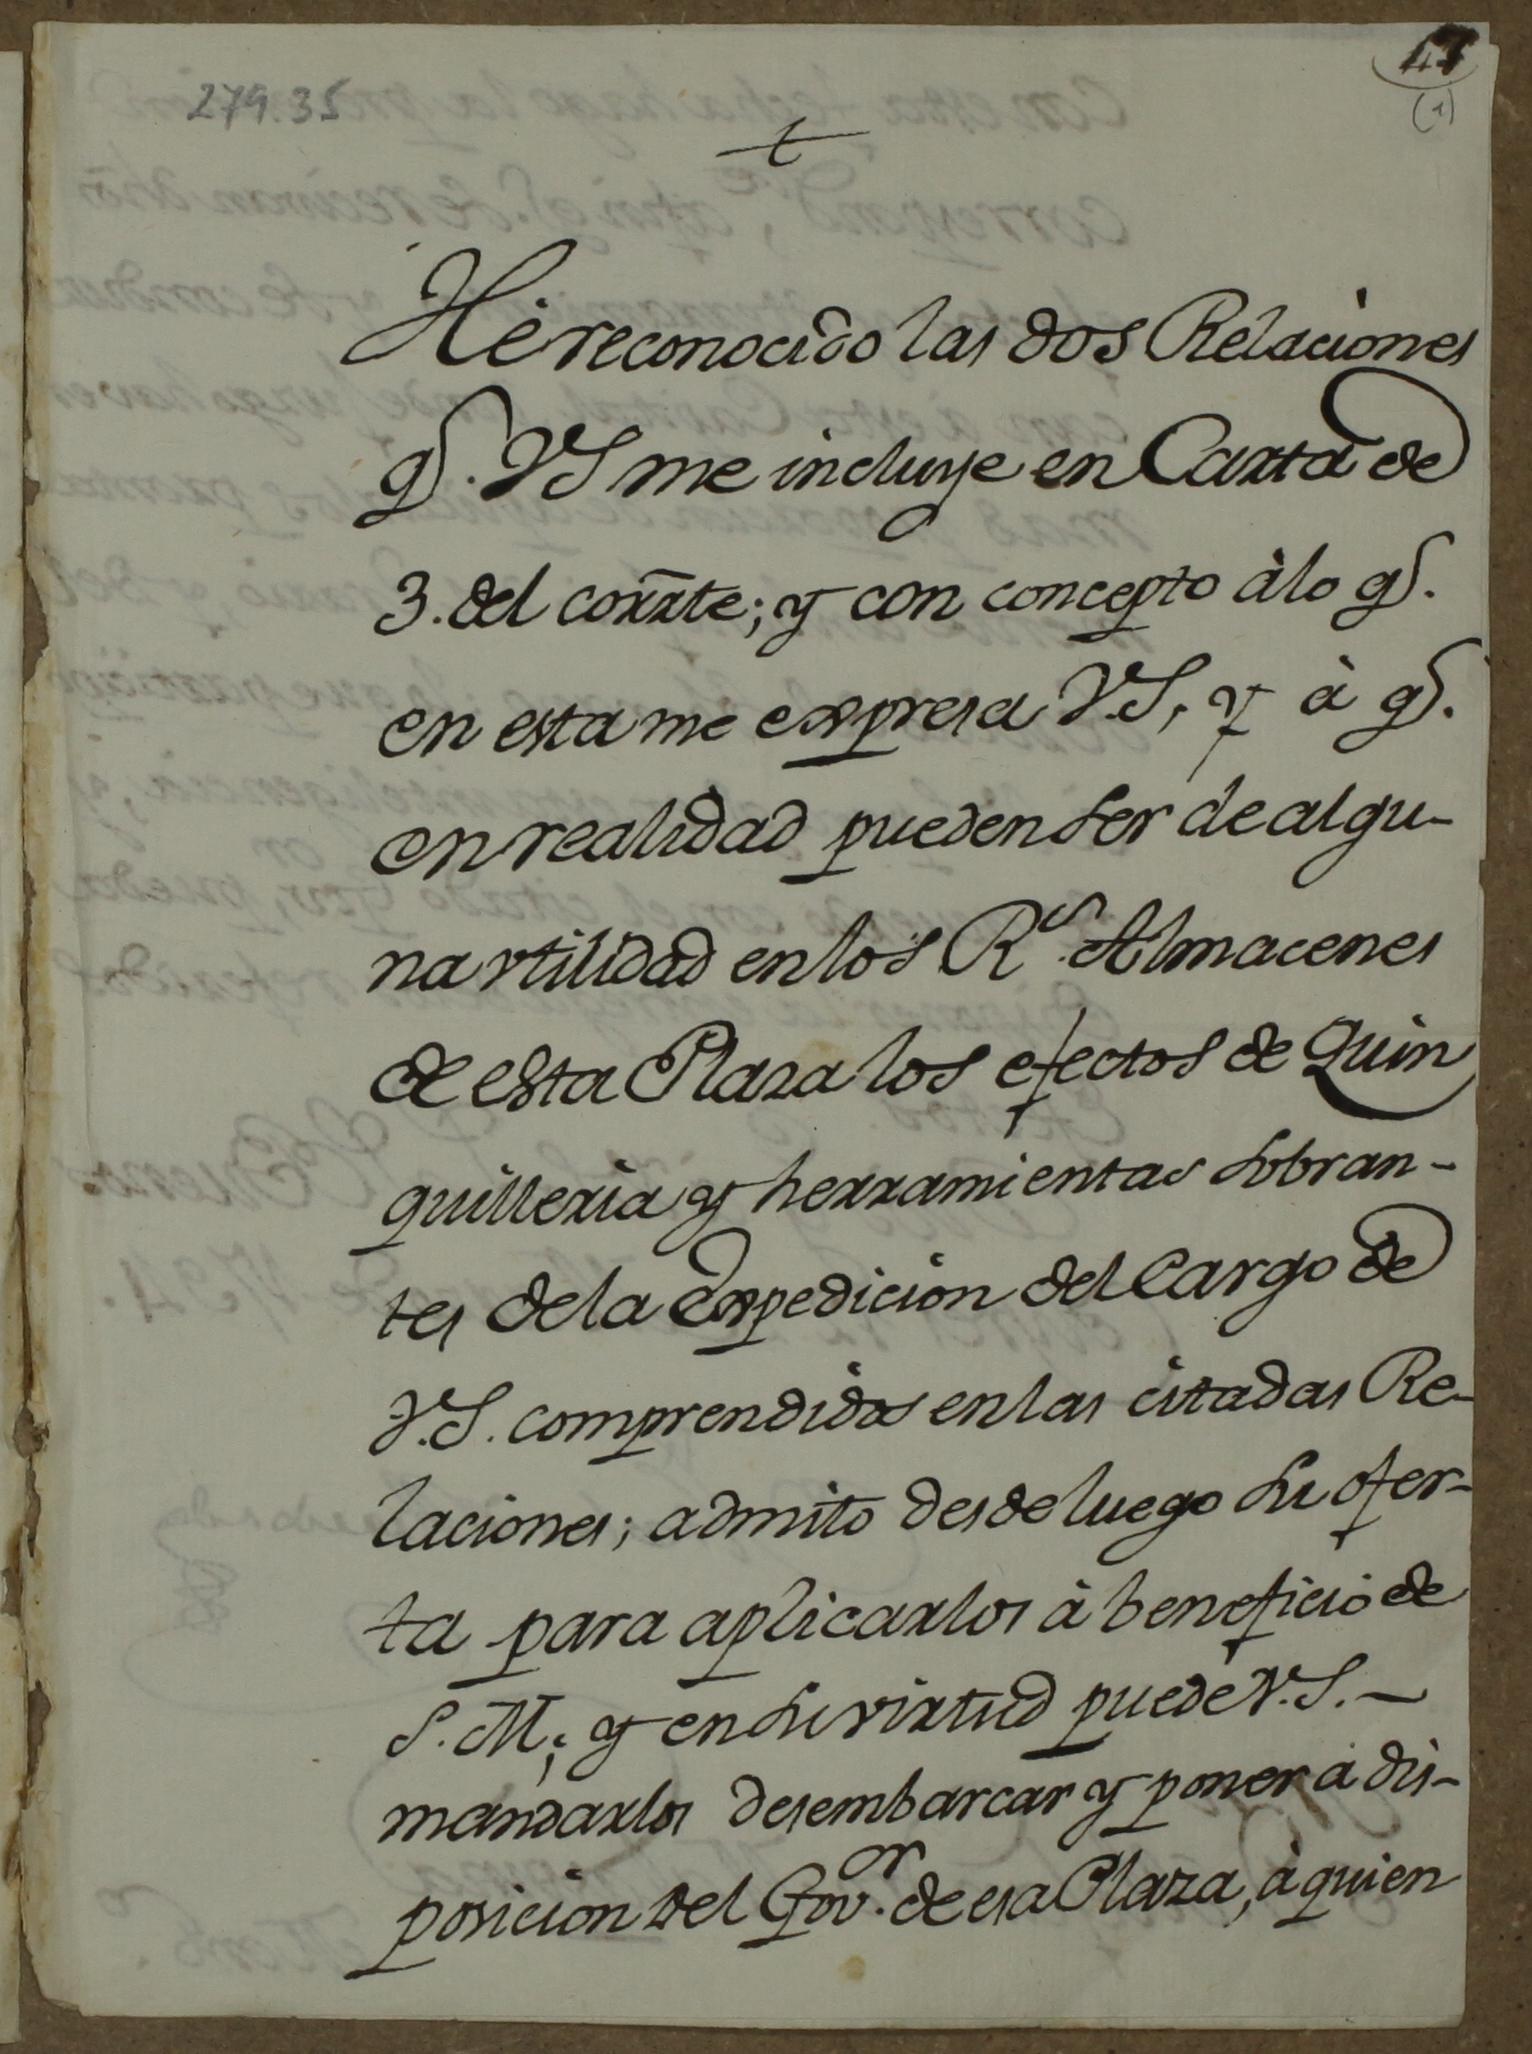 279.35
47
(1)
+
Hè reconocido las dos Relaciones
q.e VS me incluye en Carta de
3. del corr̃te; y con concepto à lo q.e
en esta me expresa V.S, y à q.e
en realidad pueden ser de algu-
na vtilidad en los R.s Almacenes
de esta Plaza los efectos de Quin
quilleria y herramientas sobran-
tes de la Expedicion del Cargo de
V.S. comprendidos en las citadas Re-
laciones; admito desde luego su ofer-
ta para aplicarlos à beneficio de
S.M; y en su virtud puede V.S. -
mandarlos desembarcar y poner à dis-
posicion del Gov.or de esa Plaza, à quien